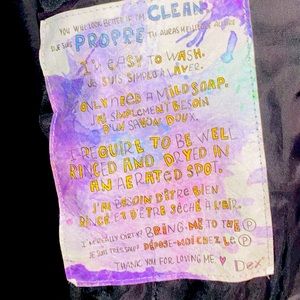 YOU WILL LOOK BETTER IF I'M CLEAN.
JE SUIS PROPRE TU AURAS MEILLEURE ALLURE
I'M EASY TO WASH.
JE SUIS SIMPLE À LAVER.
I ONLY NEED A MILD SOAP.
J'AI SIMPLEMENT BESOIN
D'UN SAVON DOUX.
I REQUIRE TO BE WELL
RINCED AND DRYED IN
AN AERATED SPOT.
J'AI BESOIN D'ÊTRE BIEN
RINCÉ ET D'ÊTRE SÉCHÉ À L'AIR.
I'M REALLY DIRTY? BRING ME TO THE Ⓟ
JE SUIS TRÈS SALE? DÉPOSE-MOI CHEZ LE Ⓟ
THANK YOU FOR LOVING ME ♥ Dex